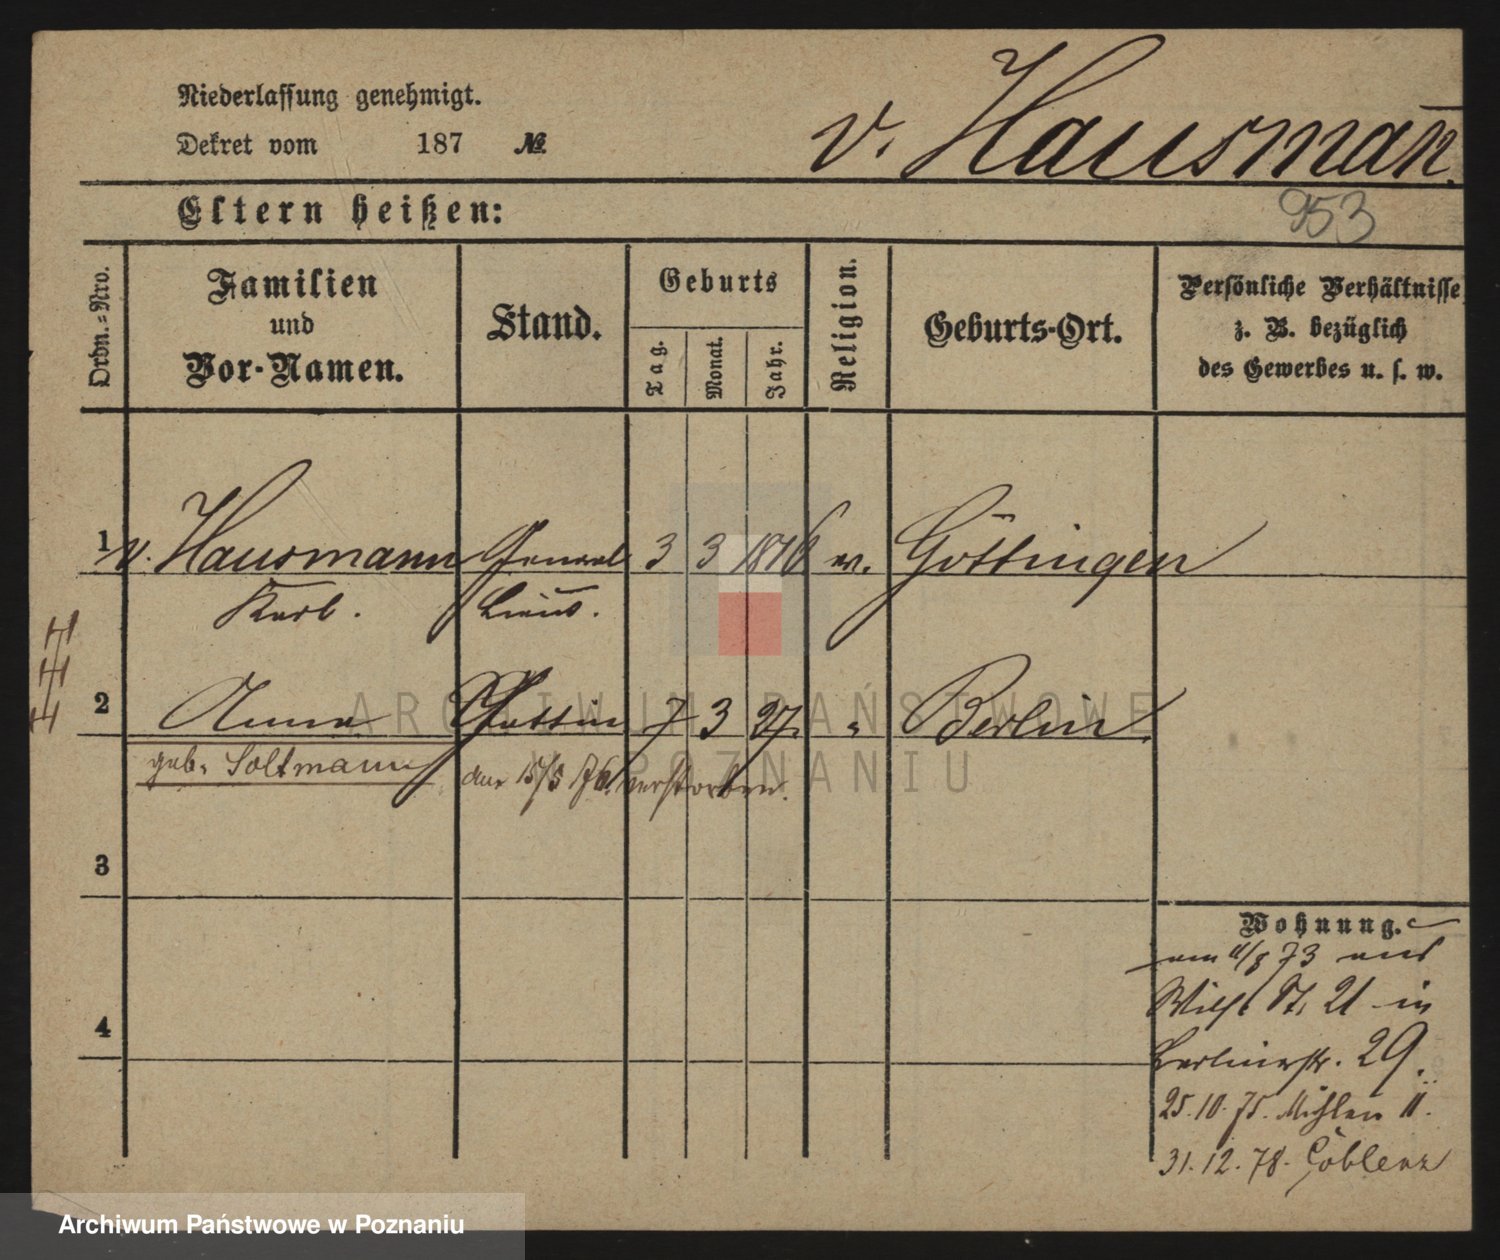 Niederlassung genehmigt.
v. Hausmann̄.
Dekret vom 187 №
Eltern heißen:
953
Ordn.-Nro.
Familien
und
Vor-Namen.
Stand.
Geburts
Tag.
Monat.
Jahr.
Religion.
Geburts-Ort.
Persönliche Verhältnisse
z. B. bezüglich
des Gewerbes u. s. w.
1 v. Hausmann General 3 3 1816 ev. Göttingen
Karl. Lieut.
2 Anna Gattin 7 3 27. " Berlin.
geb. Soltmann den 15/5 76 verstorben.
3
4
Wohnung.
am 11/8 73 aus
Wilh. St. 21 in
Berlinerstr. 29.
25.10.75. Mühlen 11.
31.12.78. Coblenz
ARCHIWUM PAŃSTWOWE
W POZNANIU
Archiwum Państwowe w Poznaniu